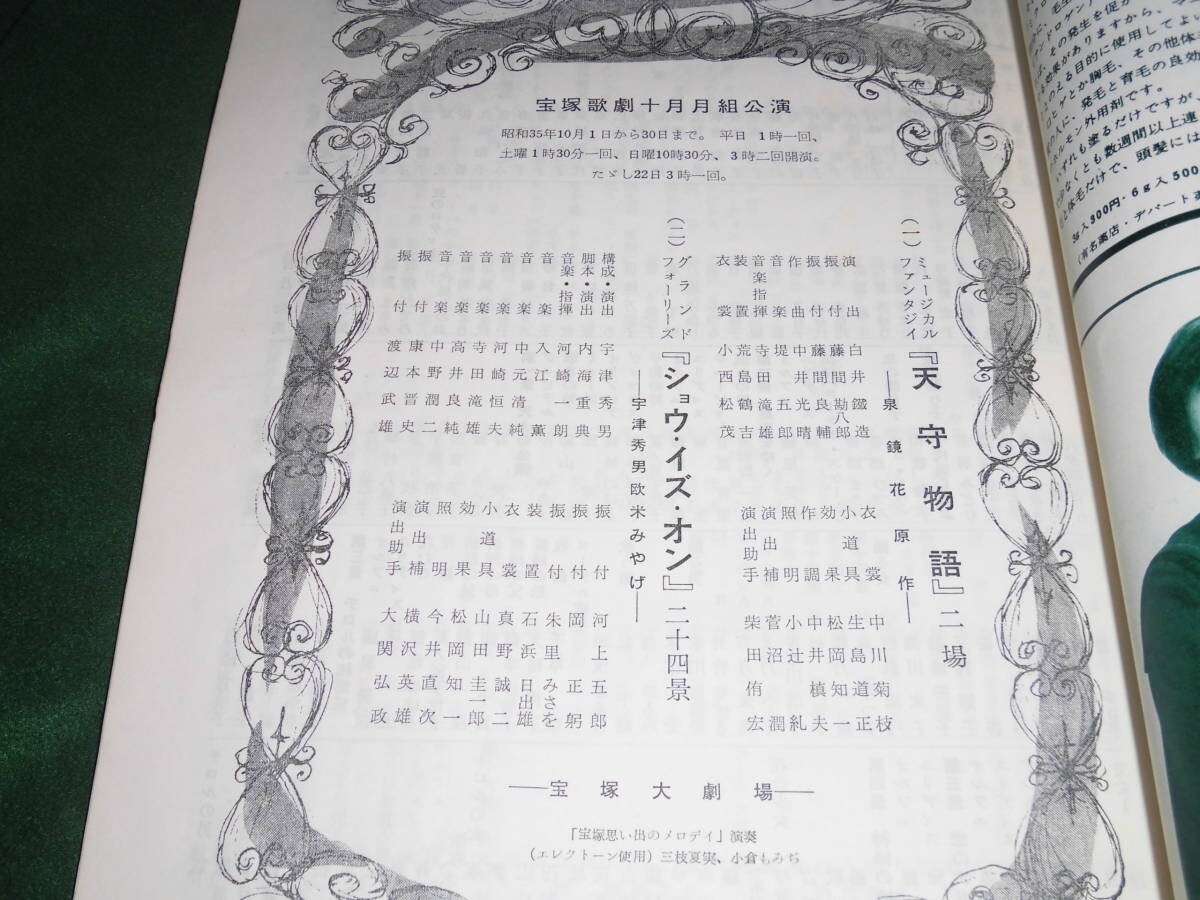 宝塚歌劇十月月組公演
昭和35年10月1日から30日まで。平日 1時一回、
土曜1時30分一回、日曜10時30分、3時二回開演。
たゞし22日3時一回。
(一)ミュージカルファンタジイ『天守物語』二場
――泉鏡花原作――
演出 白井鐵造
振付 藤間勘八郎
振付 藤間良輔
作曲 中井光晴
音楽 堤五郎
音楽指揮 寺田滝雄
装置 荒島鶴吉
衣裳 小西松茂
衣裳 中川菊枝
小道具 生島道正
効果 松岡知一
作調 中井槙夫
照明 小辻糺
演出補 菅沼潤
演出助手 柴田侑宏
(二)グランドフォーリーズ『ショウ・イズ・オン』二十四景
――宇津秀男欧米みやげ――
構成・演出 宇津秀男
脚本・演出 内海重典
音楽・指揮 河崎一朗
音楽 入江薫
音楽 中元清純
音楽 河崎恒夫
音楽 寺田滝雄
音楽 高井良純
音楽 中野潤二
振付 康本晋史
振付 渡辺武雄
振付 河上五郎
振付 岡正躬
振付 朱里みさを
装置 石浜日出雄
衣裳 真野誠二
小道具 山田圭一郎
効果 松岡知一
照明 今井直次
演出補 横沢英雄
演出助手 大関弘政
――宝塚大劇場――
「宝塚思い出のメロデイ」演奏
(エレクトーン使用)三枝夏実、小倉もみぢ
その発生を促が
効果がありますから、
える目的に使用してよ
ゲとか胸毛、その他体
人に、発毛と育毛の良効
ルモン外用剤です。
いずれも塗るだけですが
なくとも数週間以上連
と体毛だけで、頭髪には
3g入300円・6g入500
(有名薬店・デパート